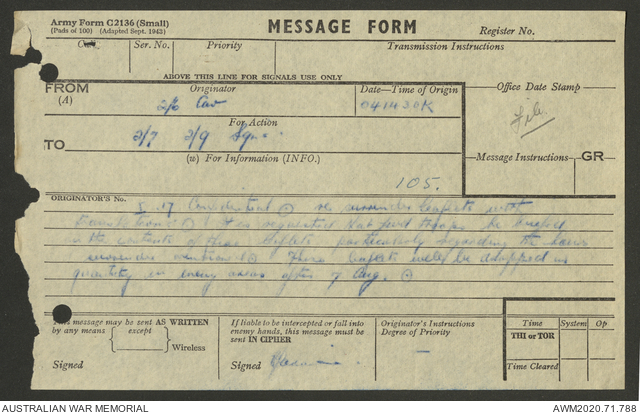 Army Form C2136 (Small)
(Pads of 100) (Adapted Sept. 1943)
MESSAGE FORM
Register No.
Call
Ser. No.
Priority
Transmission Instructions
ABOVE THIS LINE FOR SIGNALS USE ONLY
FROM
(A)
Originator
Date—Time of Origin
Office Date Stamp
2/6 Cav
041430K
File
For Action
TO
2/7 2/9 Sqns
(w) For Information (INFO.)
Message Instructions
GR
105.
ORIGINATOR'S No.
17 Confidential . re surrender leaflets with
translations . It is requested that fwd troops be briefed
in the contents of these leaflets particularly regarding the
surrender . These leaflets will be dropped in
quantity in enemy areas after 7 Aug.
This message may be sent AS WRITTEN
by any means except
Wireless
Signed
If liable to be intercepted or fall into
enemy hands, this message must be
sent IN CIPHER
Signed
Originator's Instructions
Degree of Priority
Time
System
Op
THI or TOR
Time Cleared
AUSTRALIAN WAR MEMORIAL
AWM2020.71.788